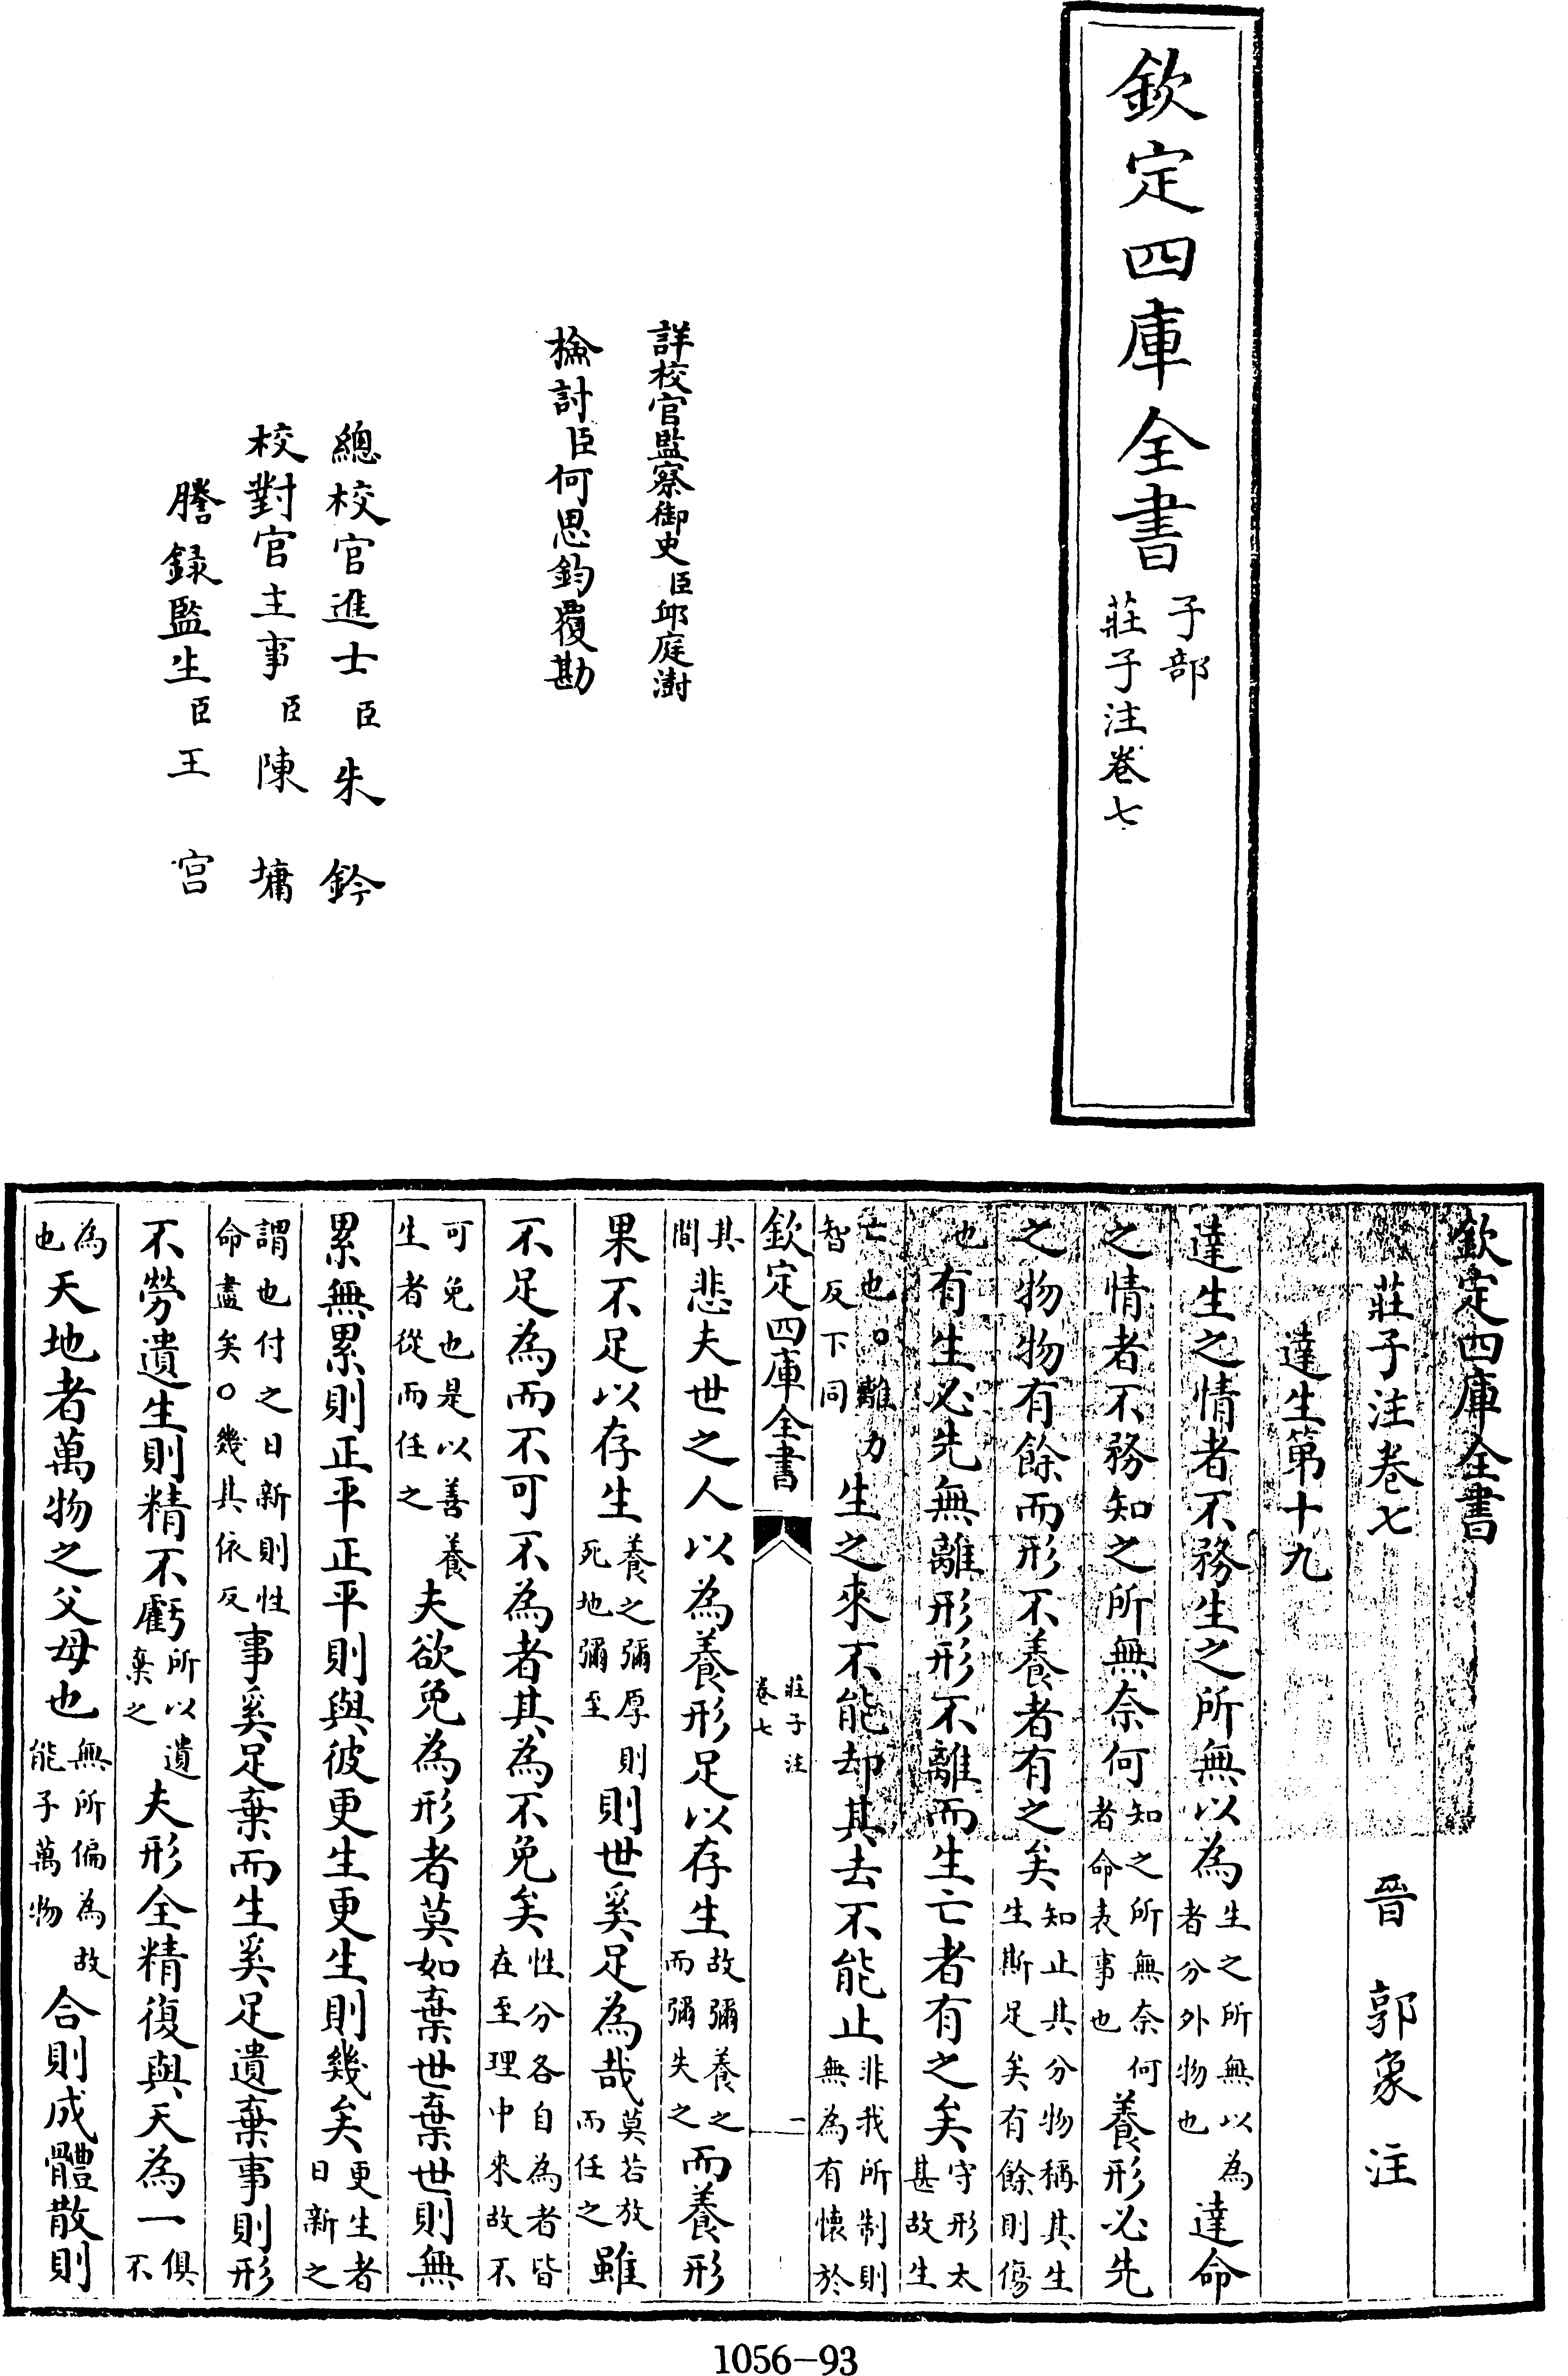 欽定四庫全書
子部
莊子注卷七
詳校官監察御史臣邱庭澍
檢討臣何思鈞覆勘
總校官進士臣朱鈐
校對官主事臣陳墉
謄録監生臣王宫
欽定四庫全書
莊子注卷七
晉 郭象 注
達生第十九
達生之情者不務生之所無以為生之所無以為者分外物也達命
之情者不務知之所無奈何知之所無奈何者命表事也養形必先
之物物有餘而形不養者有之矣知止其分物稱其生生斯足矣有餘則傷
也有生必先無離形形不離而生亡者有之矣守形太甚故生
亡也○離力智反下同生之來不能却其去不能止非我所制則無為有懷於
欽定四庫全書
莊子注
卷七
二
其間悲夫世之人以為養形足以存生故彌養之而彌失之而養形
果不足以存生養之彌厚則死地彌至則世奚足為哉莫若放而任之雖
不足為而不可不為者其為不免矣性分各自為者皆在至理中來故不
可免也是以善養生者從而任之夫欲免為形者莫如棄世棄世則無
累無累則正平正平則與彼更生更生則幾矣更生者日新之
謂也付之日新則性命盡矣○幾其依反事奚足棄而生奚足遺棄事則形
不勞遺生則精不虧所以遺棄之夫形全精復與天為一俱不
為也天地者萬物之父母也無所偏為故能子萬物合則成體散則
1056-93